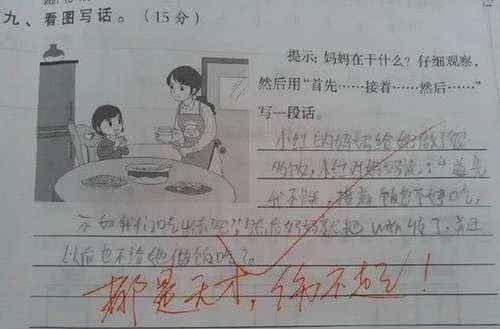 九、看图写话。(15分)
提示:妈妈在干什么?仔细观察,
然后用“首先……接着……然后……”
写一段话。
小红的妈妈给她做了很
多饭,小红对妈妈说:“首先
我不饿,接着饭也不好吃,
不如我们吃
然后妈妈就把 wǎn 收了,并且
以后也不给她做饭吃了。
都是天才,伤不起!